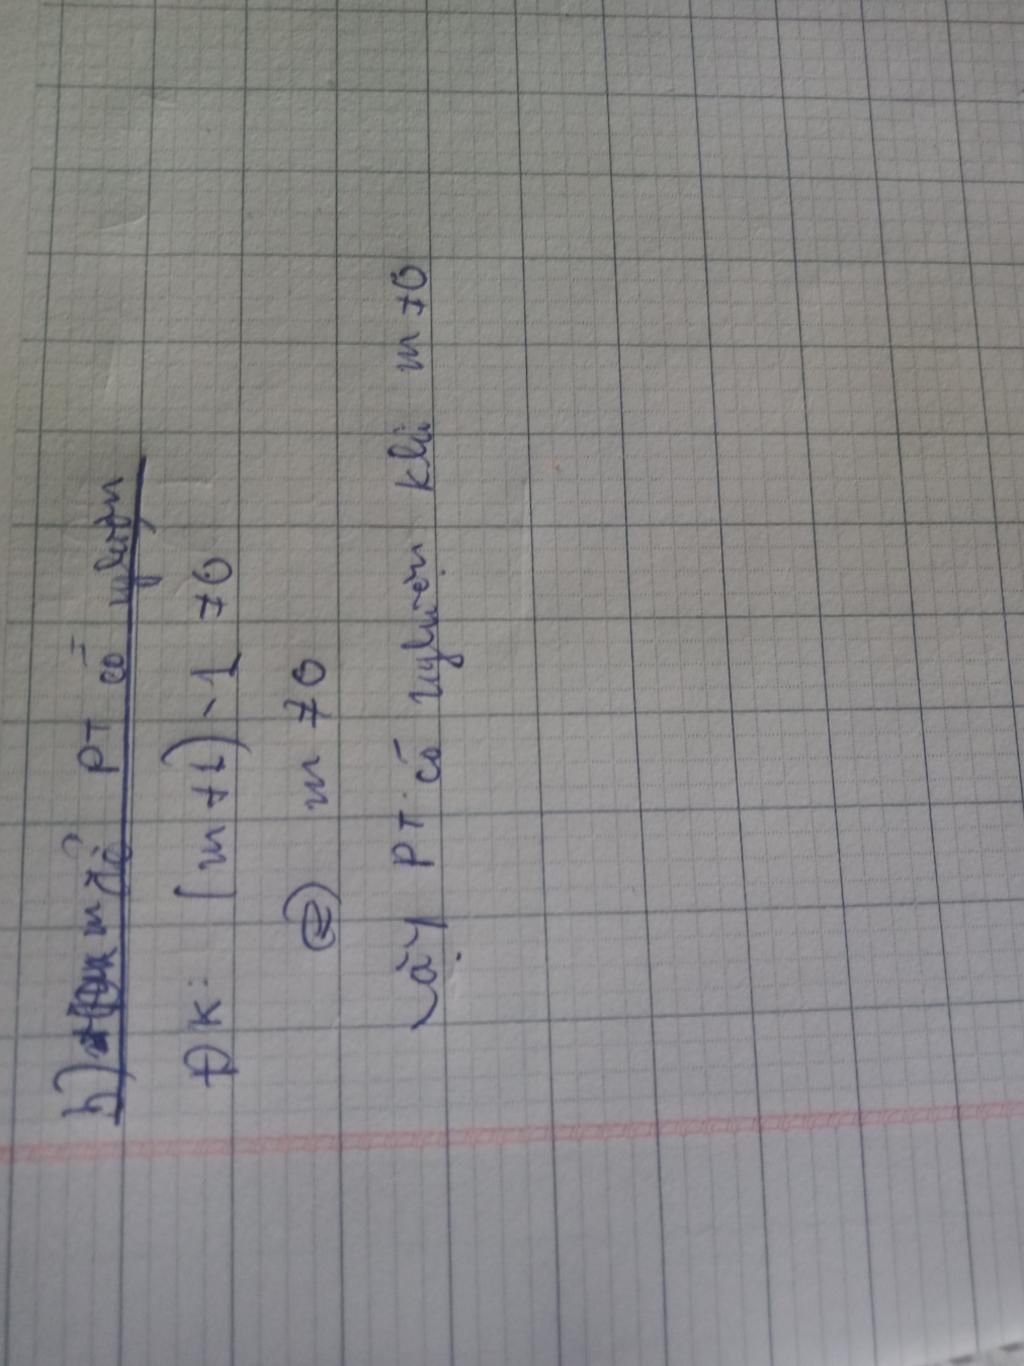 b) m để PT có nghiệm
ĐK: (m+1)-1 ≠0
⇔ m ≠0
Vậy PT có nghiệm khi m ≠0